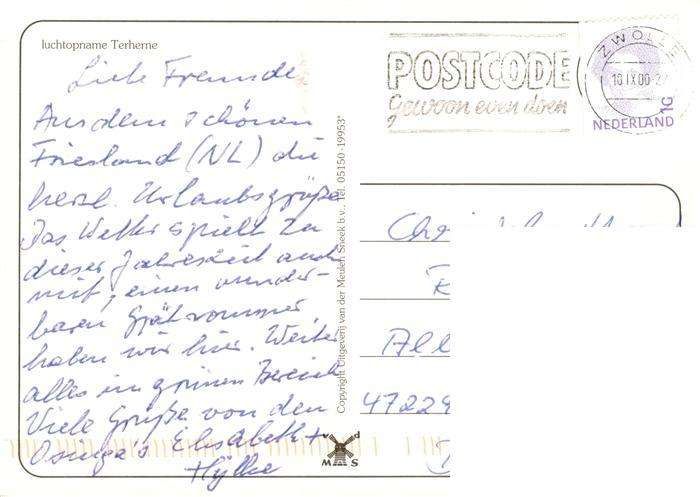 luchtopname Terherne
Liebe Freunde
Aus dem schönen
Friesland (NL) die
herzl. Urlaubsgrüße
Das Wetter spielt zu
dieser Jahreszeit auch
mit, einen wunder-
baren Spätsommer
haben wir hier. Weiter
alles im grünen Bereich
Viele Grüße von den
Osinga's Elisabeth +
Hylke
Copyright Uitgeverij van der Meulen Sneek b.v., Tel. 05150-19953*
v d
M S
POSTCODE
Gewoon even doen
ZWOLLE
10 IX 00
1G
NEDERLAND
All
47229